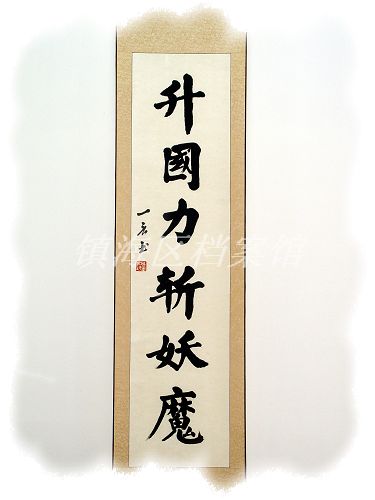 升國力斬妖魔
一名书
镇海区档案馆